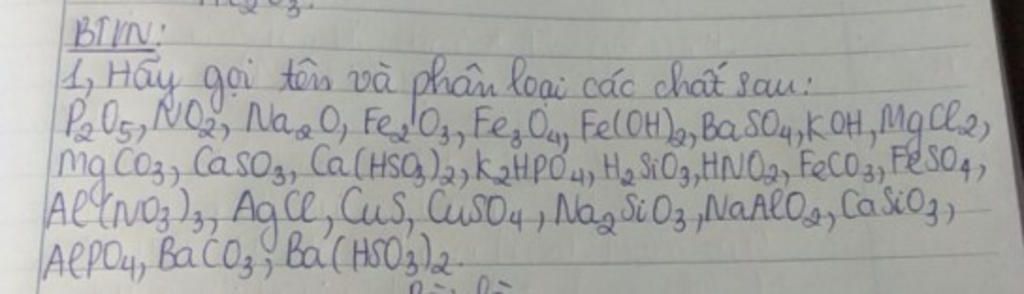 BTVN:
1, Hãy gọi tên và phân loại các chất sau:
P₂O₅, NO₂, Na₂O, Fe₂O₃, Fe₃O₄, Fe(OH)₂, BaSO₄, KOH, MgCl₂,
MgCO₃, CaSO₃, Ca(HSO₃)₂, K₂HPO₄, H₂SiO₃, HNO₂, FeCO₃, FeSO₄,
Al(NO₃)₃, AgCl, CuS, CuSO₄, Na₂SiO₃, NaAlO₂, CaSiO₃,
AlPO₄, BaCO₃, Ba(HSO₃)₂.